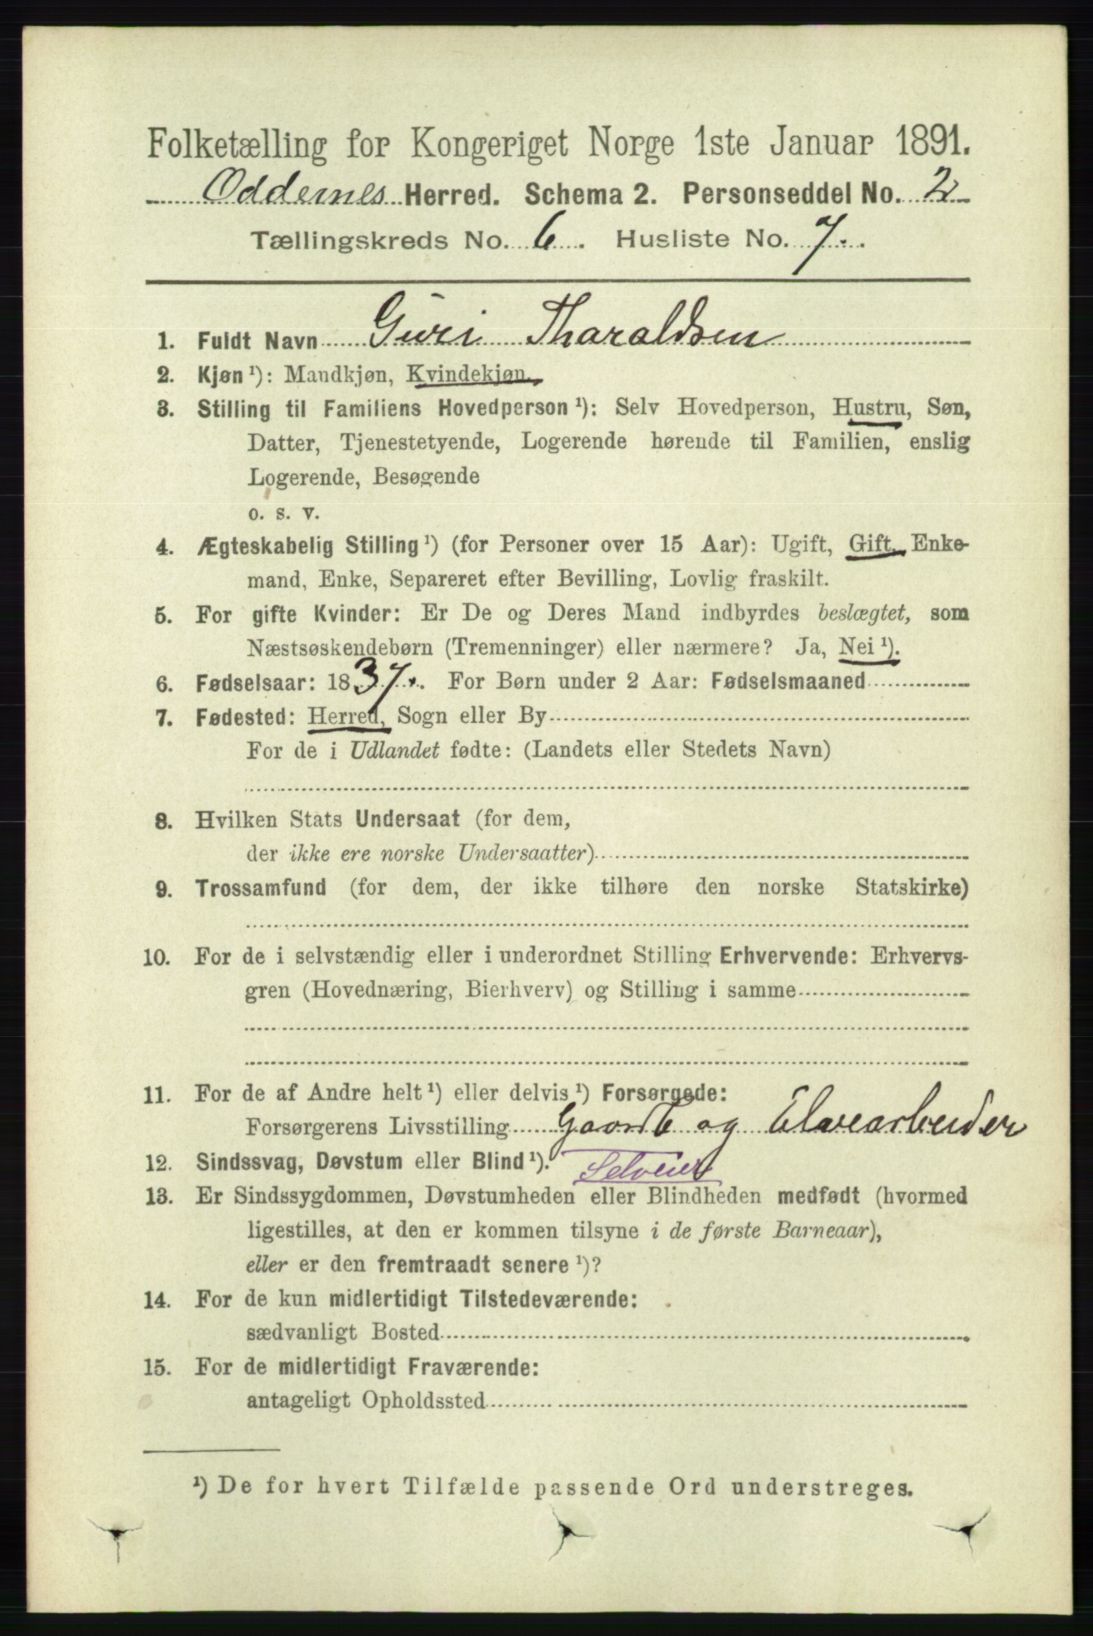 Folketælling for Kongeriget Norge 1ste Januar 1891.
Oddernes Herred. Schema 2. Personseddel No. 2
Tællingskreds No. 6. Husliste No. 7.
1. Fuldt Navn Guri Tharaldsen
2. Kjøn ¹): Mandkjøn, Kvindekjøn.
3. Stilling til Familiens Hovedperson ¹): Selv Hovedperson, Hustru, Søn,
Datter, Tjenestetyende, Logerende hørende til Familien, enslig
Logerende, Besøgende
o. s. v.
4. Ægteskabelig Stilling ¹) (for Personer over 15 Aar): Ugift, Gift, Enke-
mand, Enke, Separeret efter Bevilling, Lovlig fraskilt.
5. For gifte Kvinder: Er De og Deres Mand indbyrdes beslægtet, som
Næstsøskendebørn (Tremenninger) eller nærmere? Ja, Nei ¹).
6. Fødselsaar: 1837. For Børn under 2 Aar: Fødselsmaaned
7. Fødested: Herred, Sogn eller By
For de i Udlandet fødte: (Landets eller Stedets Navn)
8. Hvilken Stats Undersaat (for dem,
der ikke ere norske Undersaatter)
9. Trossamfund (for dem, der ikke tilhøre den norske Statskirke)
10. For de i selvstændig eller i underordnet Stilling Erhvervende: Erhvervs-
gren (Hovednæring, Bierhverv) og Stilling i samme
11. For de af Andre helt ¹) eller delvis ¹) Forsørgede:
Forsørgerens Livsstilling Gaardb og Elvearbeider
12. Sindssvag, Døvstum eller Blind ¹). Selveier
13. Er Sindssygdommen, Døvstumheden eller Blindheden medfødt (hvormed
ligestilles, at den er kommen tilsyne i de første Barneaar),
eller er den fremtraadt senere ¹)?
14. For de kun midlertidigt Tilstedeværende:
sædvanligt Bosted
15. For de midlertidigt Fraværende:
antageligt Opholdssted
¹) De for hvert Tilfælde passende Ord understreges.